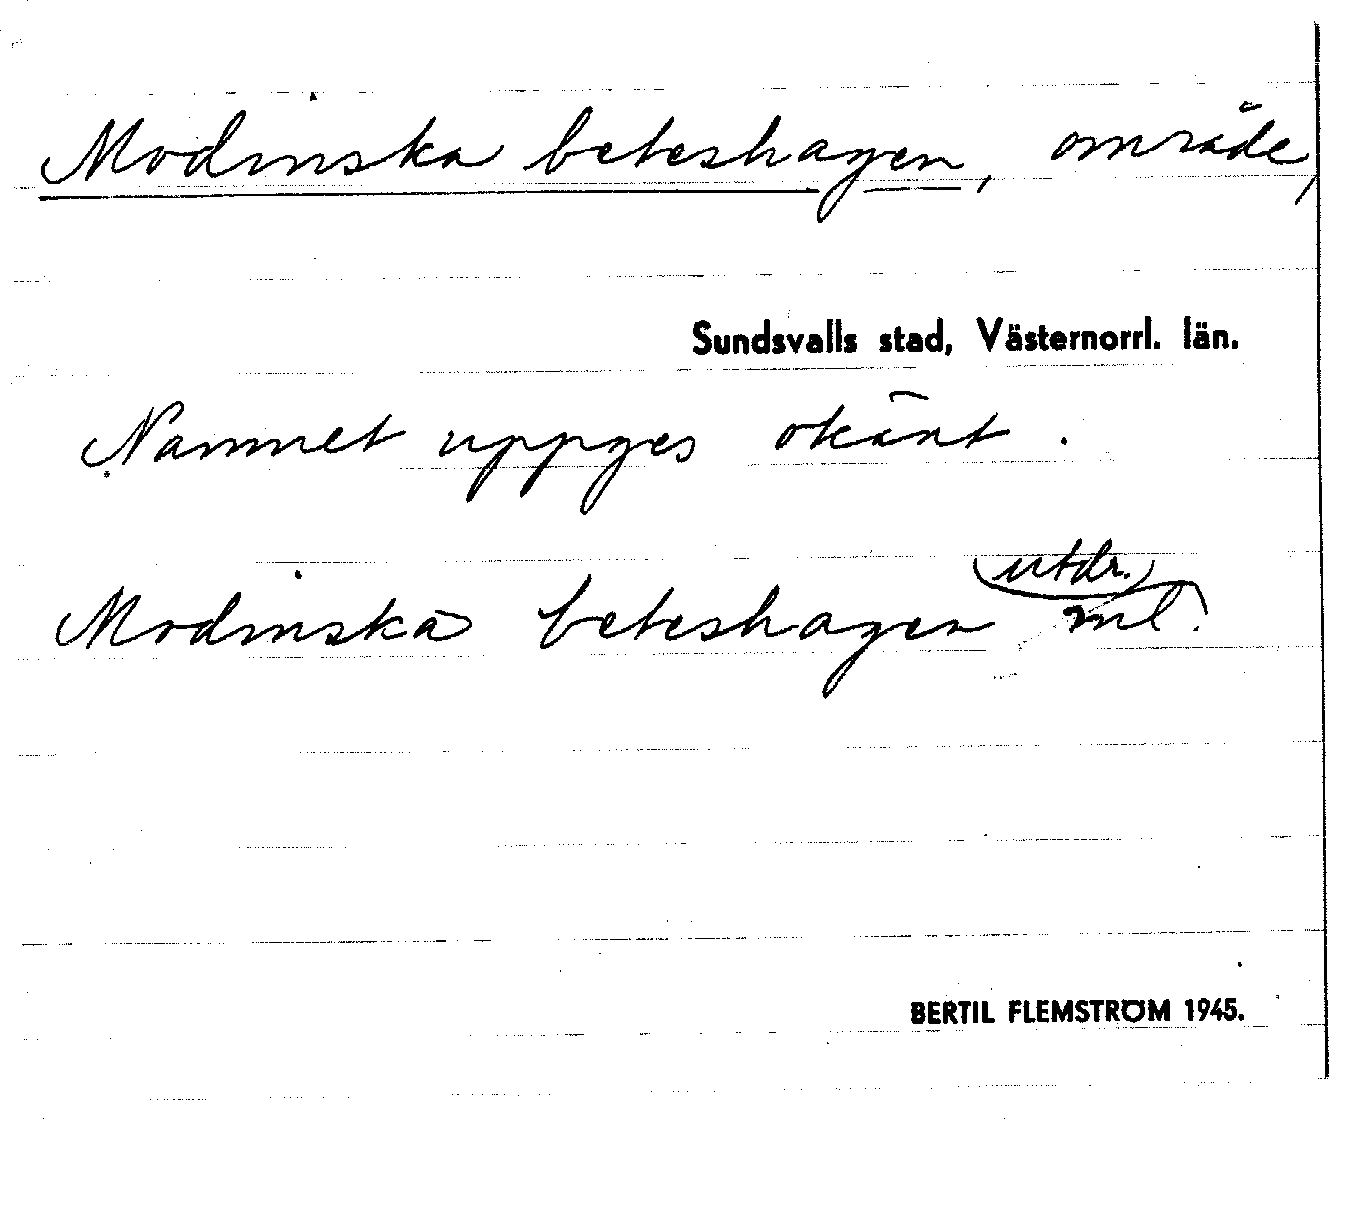 Modinska beteshagen, område,
Sundsvalls stad, Västernorrl. län.
Namnet uppges okänt.
utdr.
Modinska beteshagen ml.
BERTIL FLEMSTRÖM 1945.